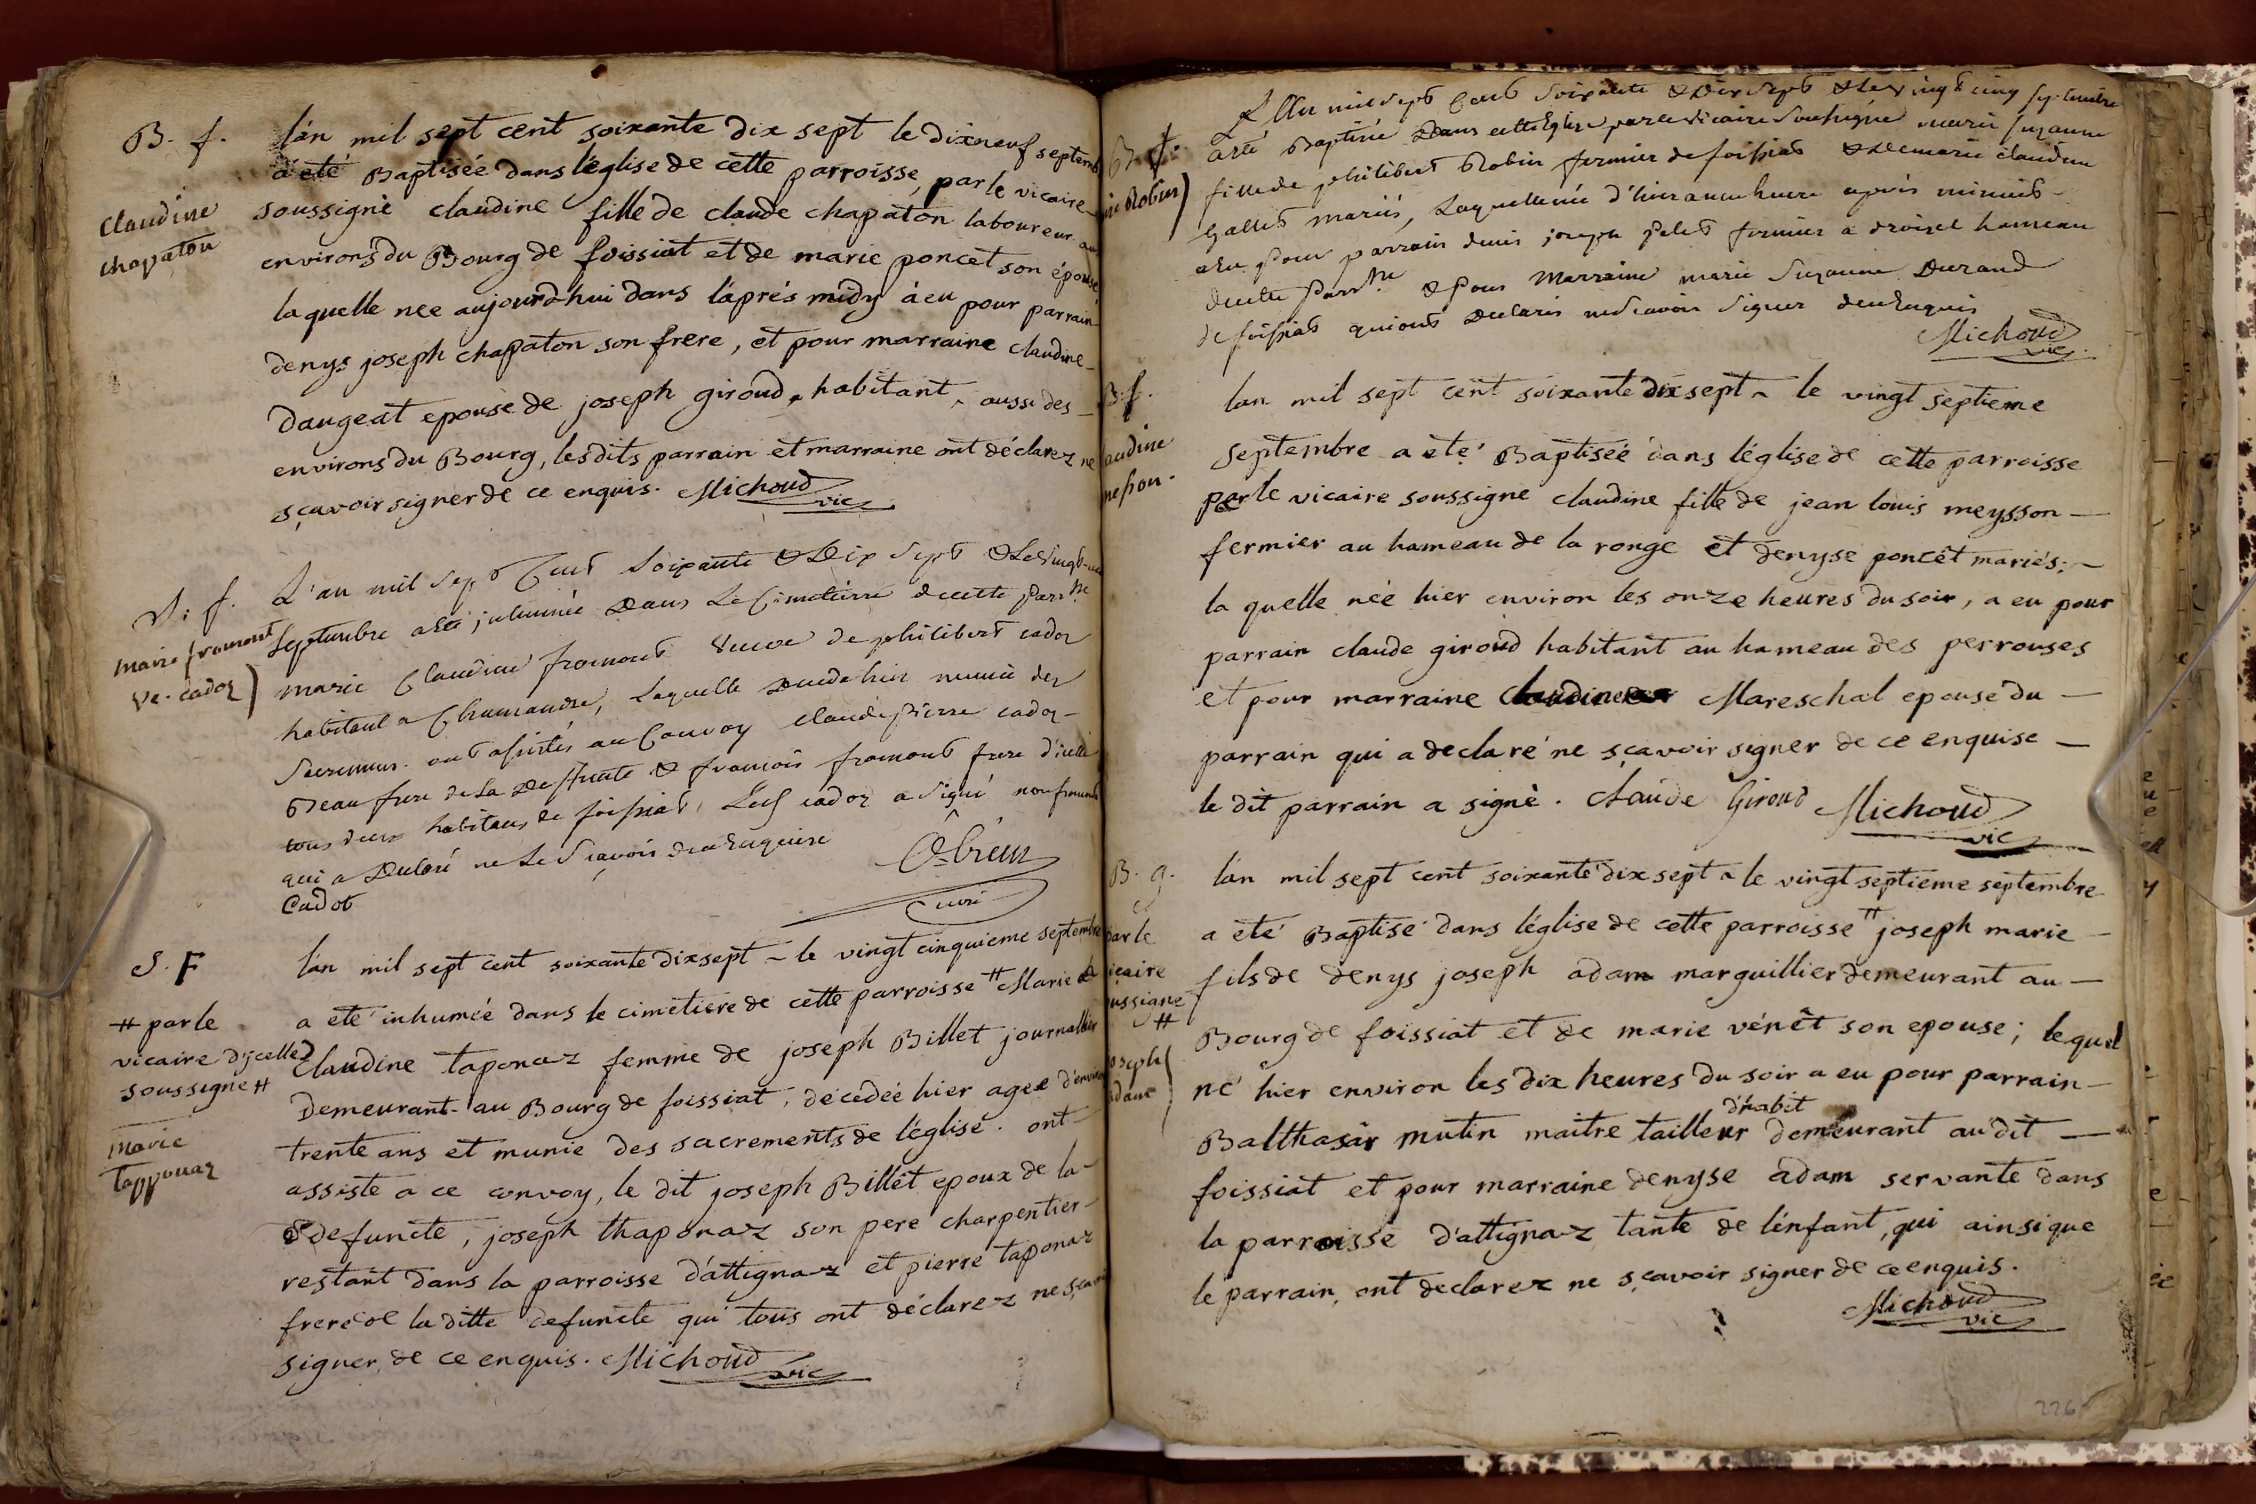 B. f.
Claudine
chapaton
lán mil sept cent soixante dix sept le dixneuf septemb
á été Baptiséé dans léglise de cette parroisse, par le vicaire
soussigné claudine fille de claude chapaton laboureur au
environs du Bourg de foissiat et de marie poncet son épouse
la quelle neé aujourdhui dans láprés midy á eu pour parrain
denys joseph chapaton son frere, et pour marraine claudine
daugeat epouse de joseph giroud, habitant, aussi des
environs du Bourg, les dits parrain et marraine ont déclarez ne
sçavoir signer de ce enquis. Michoud
vic
V. f.
marie fromont
ve. cadoz
L'an mil sept Cent Soixante & Dix Sept & Le Vingt
Septembre a été inhumée Dans Le Cimetière de cette Parr.sse
marie Claudine fromont veuve de philibert cadoz
habitant a Chamandre, Laquelle munie des
Sacremens. ont assistés au Convoy claude pierre cadoz
Beau frere de La Deffunte & françois fromont frere d'icelle
tous deux habitans de foissiat, Led cadoz a signé
qui a Declaré ne Le Sçavoir de ce Enquis
Cadot
curé
S. F
# par le
vicaire dycelle
soussigne #
marie
tapponaz
lán mil sept cent soixante dix sept - le vingt cinquieme septembre
a eté inhumeé dans le cimetiere de cette parroisse # Marie
Claudine taponaz femme de joseph Billet journallier
Demeurant au Bourg de foissiat, décedeé hier ageé d'environ
trente ans et munie des sacrements de léglise. ont
assisté a ce convoy, le dit joseph Billet epoux de la
defuncte, joseph thaponaz son pere charpentier
restant dans la parroisse dáttignaz et pierre taponaz
frere de la ditte defuncte qui tous ont déclarez ne sçavoir
signer de ce enquis. Michoud
vic
B. f.
ne Robin
L'An mil sept Cent Soixante & Dix Sept & Le vingt cinq septembre
a été Baptisée Dans cette Eglise par le vicaire Soussigné marie suzanne
fille de philibert Robin fermier de foissiat & De marie claudine
Gallet mariés, Laquelle née d'hier a une heure après minuit
a Eu Pour parrain denis joseph fermier a hameau
de cette Parr.sse & Pour Marraine marie Suzanne Durand
de foissiat qui ont Declarés ne Sçavoir Signer de ce Enquis
Michoud
vic.
B. f.
laudine
messon.
lan mil sept cent soixante dix sept - le vingt septieme
septembre a été Baptiséé dans léglise de cette parroisse
par le vicaire soussigné claudine fille de jean louis meysson
fermier au hameau de la ronge et denyse poncêt mariés;
la quelle néé hier environ les onze heures du soir, a eu pour
parrain claude giroud habitant au hameau des perrouses
et pour marraine Claudine Mareschal epouse du
parrain qui a declaré ne sçavoir signer de ce enquise
le dit parrain a signé. Claude Giroud Michoud
vic
B. g.
par le
icaire
ussigne
#
oseph
adam
lán mil sept cent soixante dix sept - le vingt septieme septembre
a eté Baptisé dans léglise de cette parroisse # joseph marie
fils de denys joseph adam marguillier demeurant au
Bourg de foissiat et de marie vénêt son epouse; lequel
né hier environ les dix heures du soir a eu pour parrain
d'habit
Balthasar mutin maitre tailleur demeurant au dit
foissiat et pour marraine denyse adam servante dans
la parroisse dáttignaz tante de lénfant, qui ainsi que
le parrain, ont declarez ne sçavoir signer de ce enquis.
Michoud
vic
226